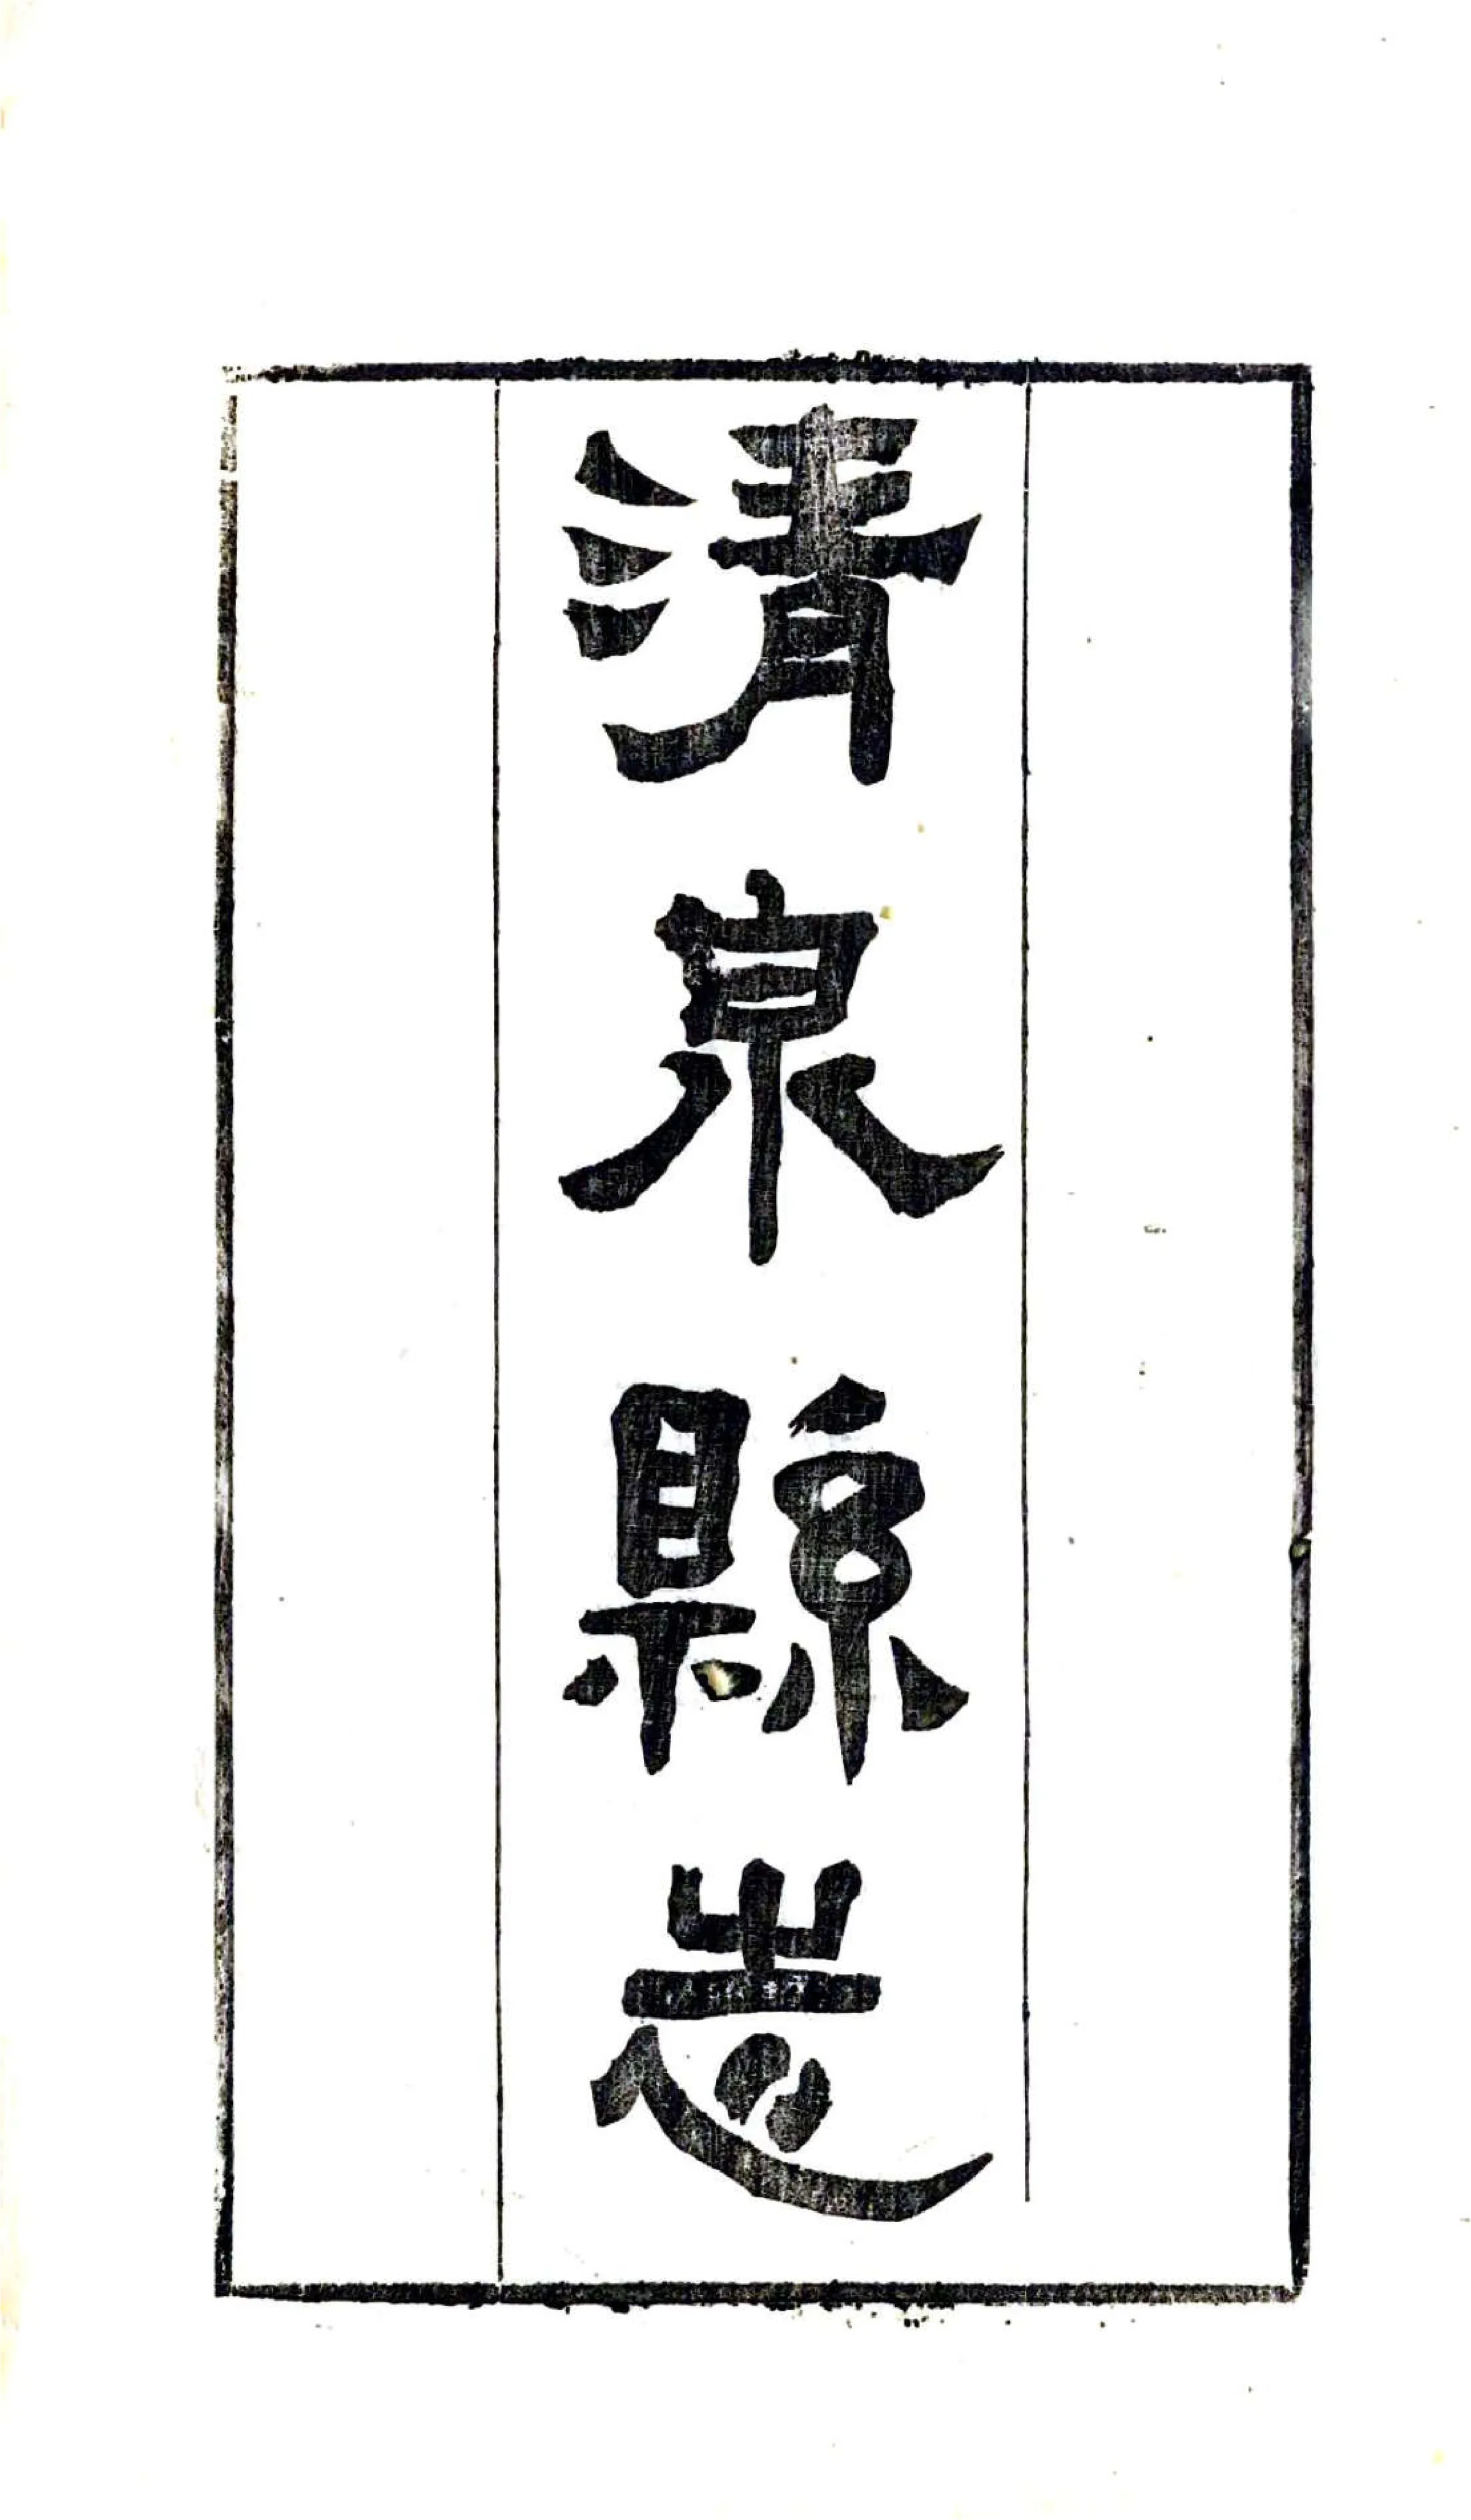 清泉縣志